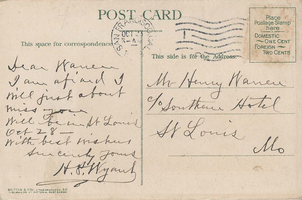 POST CARD
This space for correspondence
This side is for the Address
Place
Postage Stamp
here
DOMESTIC
ONE CENT
FOREIGN
TWO CENTS
Dear Warren
I am afraid I
will just about
miss you
Will be in St Louis
Oct 28 -
With best wishes
Sincerely yours
Mr Henry Warren
c/o Southern Hotel
St Louis
Mo